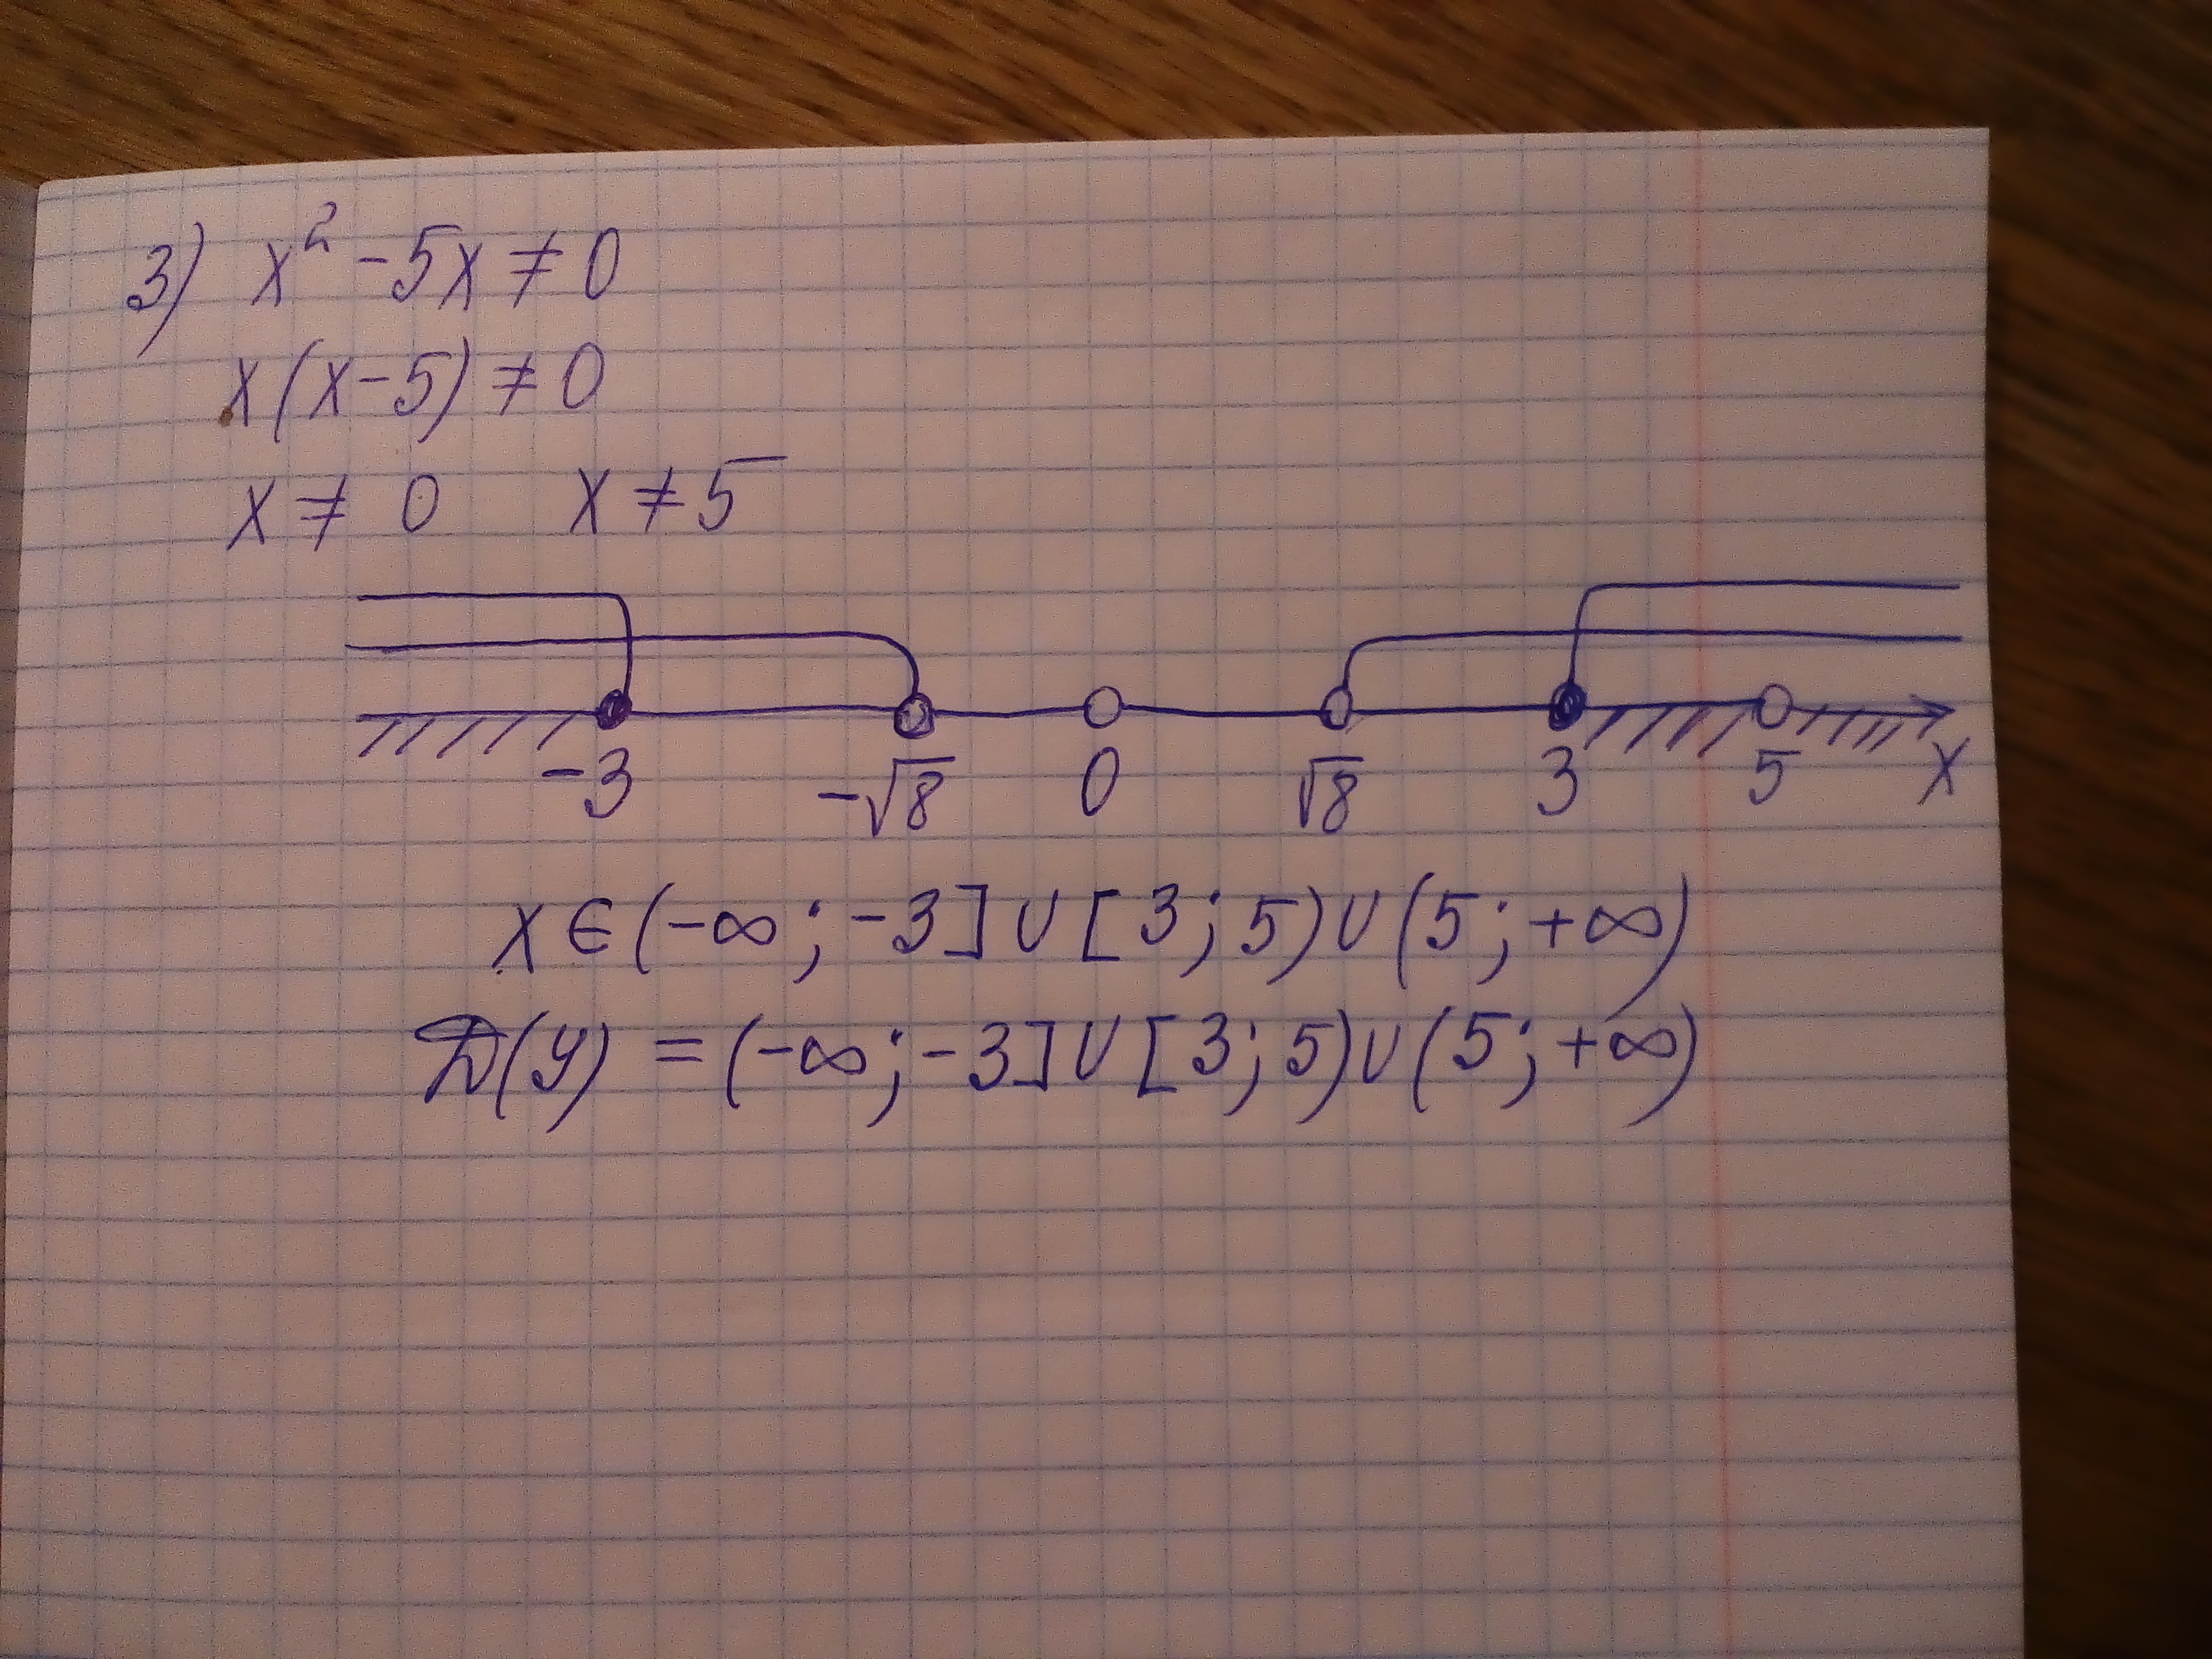 3) x² - 5x ≠ 0
x(x-5) ≠ 0
x ≠ 0 x ≠ 5
-3 -√8 0 √8 3 5 x
x ∈ (-∞; -3] ∪ [3; 5) ∪ (5; +∞)
D(y) = (-∞; -3] ∪ [3; 5) ∪ (5; +∞)